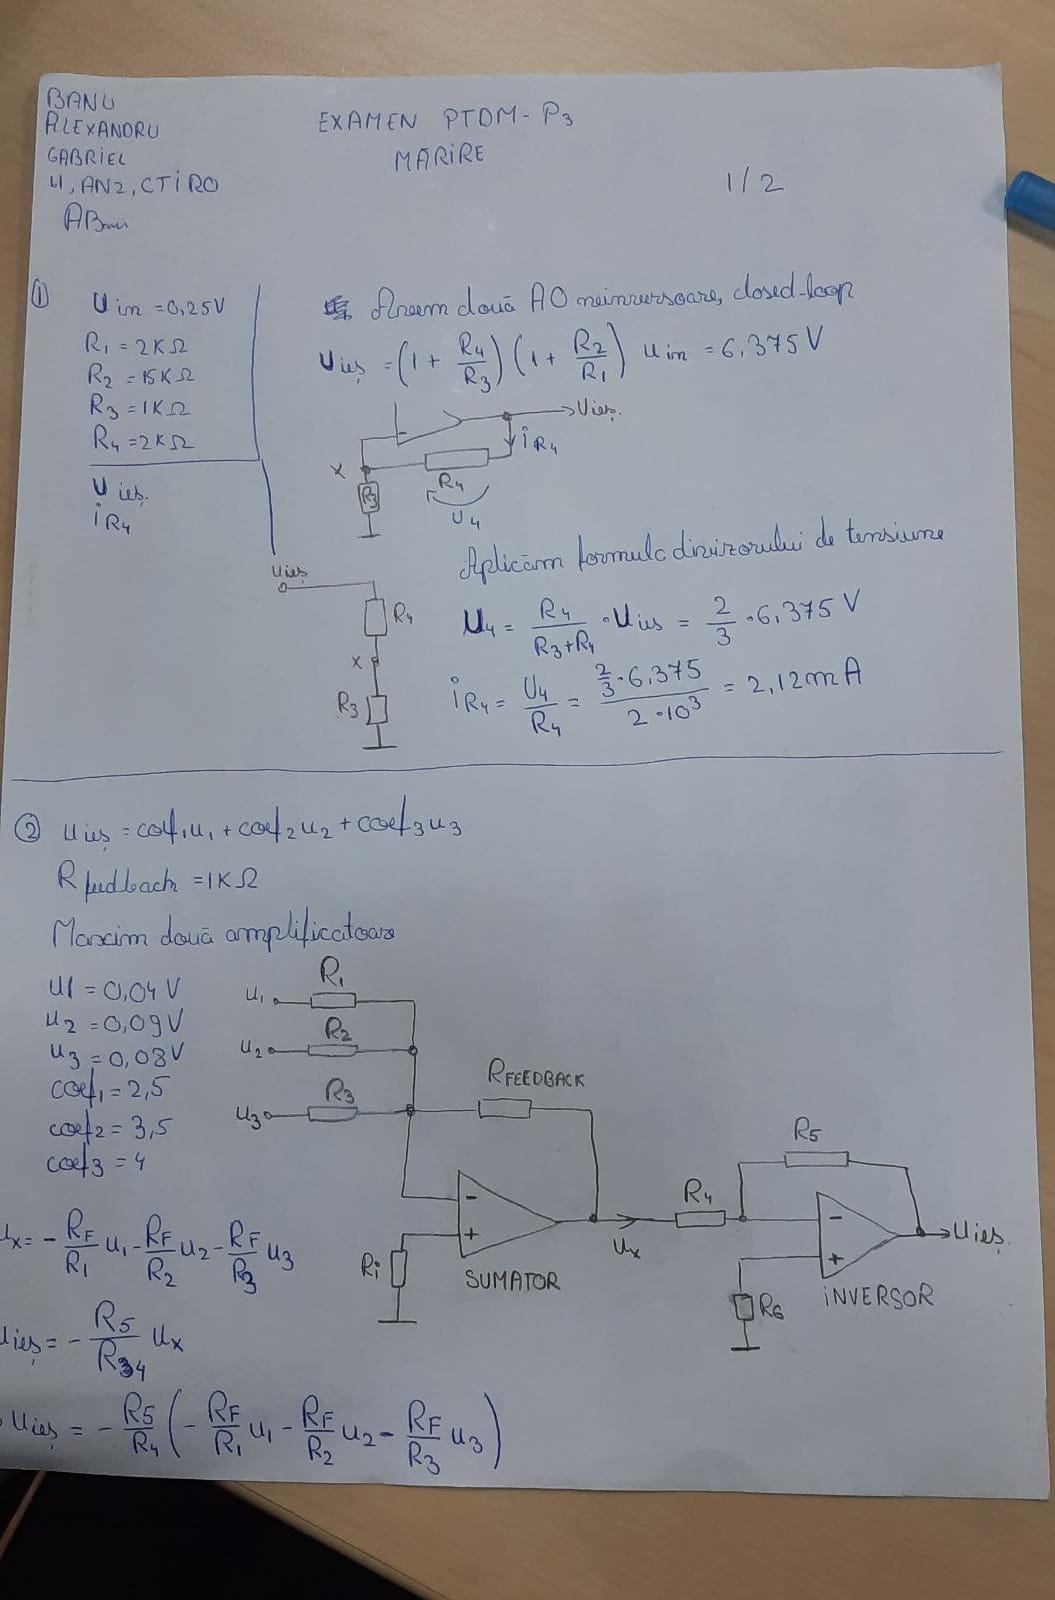 BANU
ALEXANDRU
GABRIEL
4, AN2, CTi RO
EXAMEN PTDM - P3
MARIRE
1/2
①
Uin = 0,25V
R1 = 2KΩ
R2 = 15KΩ
R3 = 1KΩ
R4 = 2KΩ
U ieș.
i R4
Avem două AO neinversoare, closed-loop
Uieș = (1 + R4/R3) (1 + R2/R1) Uin = 6,375 V
-
Uieș.
i R4
X
R4
R3
U4
Uieș
R4
X
R3
Aplicăm formula divizorului de tensiune
U4 = R4/(R3+R4) · Uieș = 2/3 · 6,375 V
i R4 = U4/R4 = (2/3 · 6,375)/(2 · 10³) = 2,12 mA
② Uieș = coef1u1 + coef2u2 + coef3u3
R feedback = 1KΩ
Maxim două amplificatoare
u1 = 0,04 V
u2 = 0,09V
u3 = 0,08V
coef1 = 2,5
coef2 = 3,5
coef3 = 4
u1 R1
u2 R2
u3 R3
RFEEDBACK
-
+
Ri
SUMATOR
Ux
R4
R5
-
+
Uieș.
R6
iNVERSOR
Ux = - RF/R1 u1 - RF/R2 u2 - RF/R3 u3
Uieș = - R5/R4 Ux
Uieș = - R5/R4 (- RF/R1 u1 - RF/R2 u2 - RF/R3 u3)